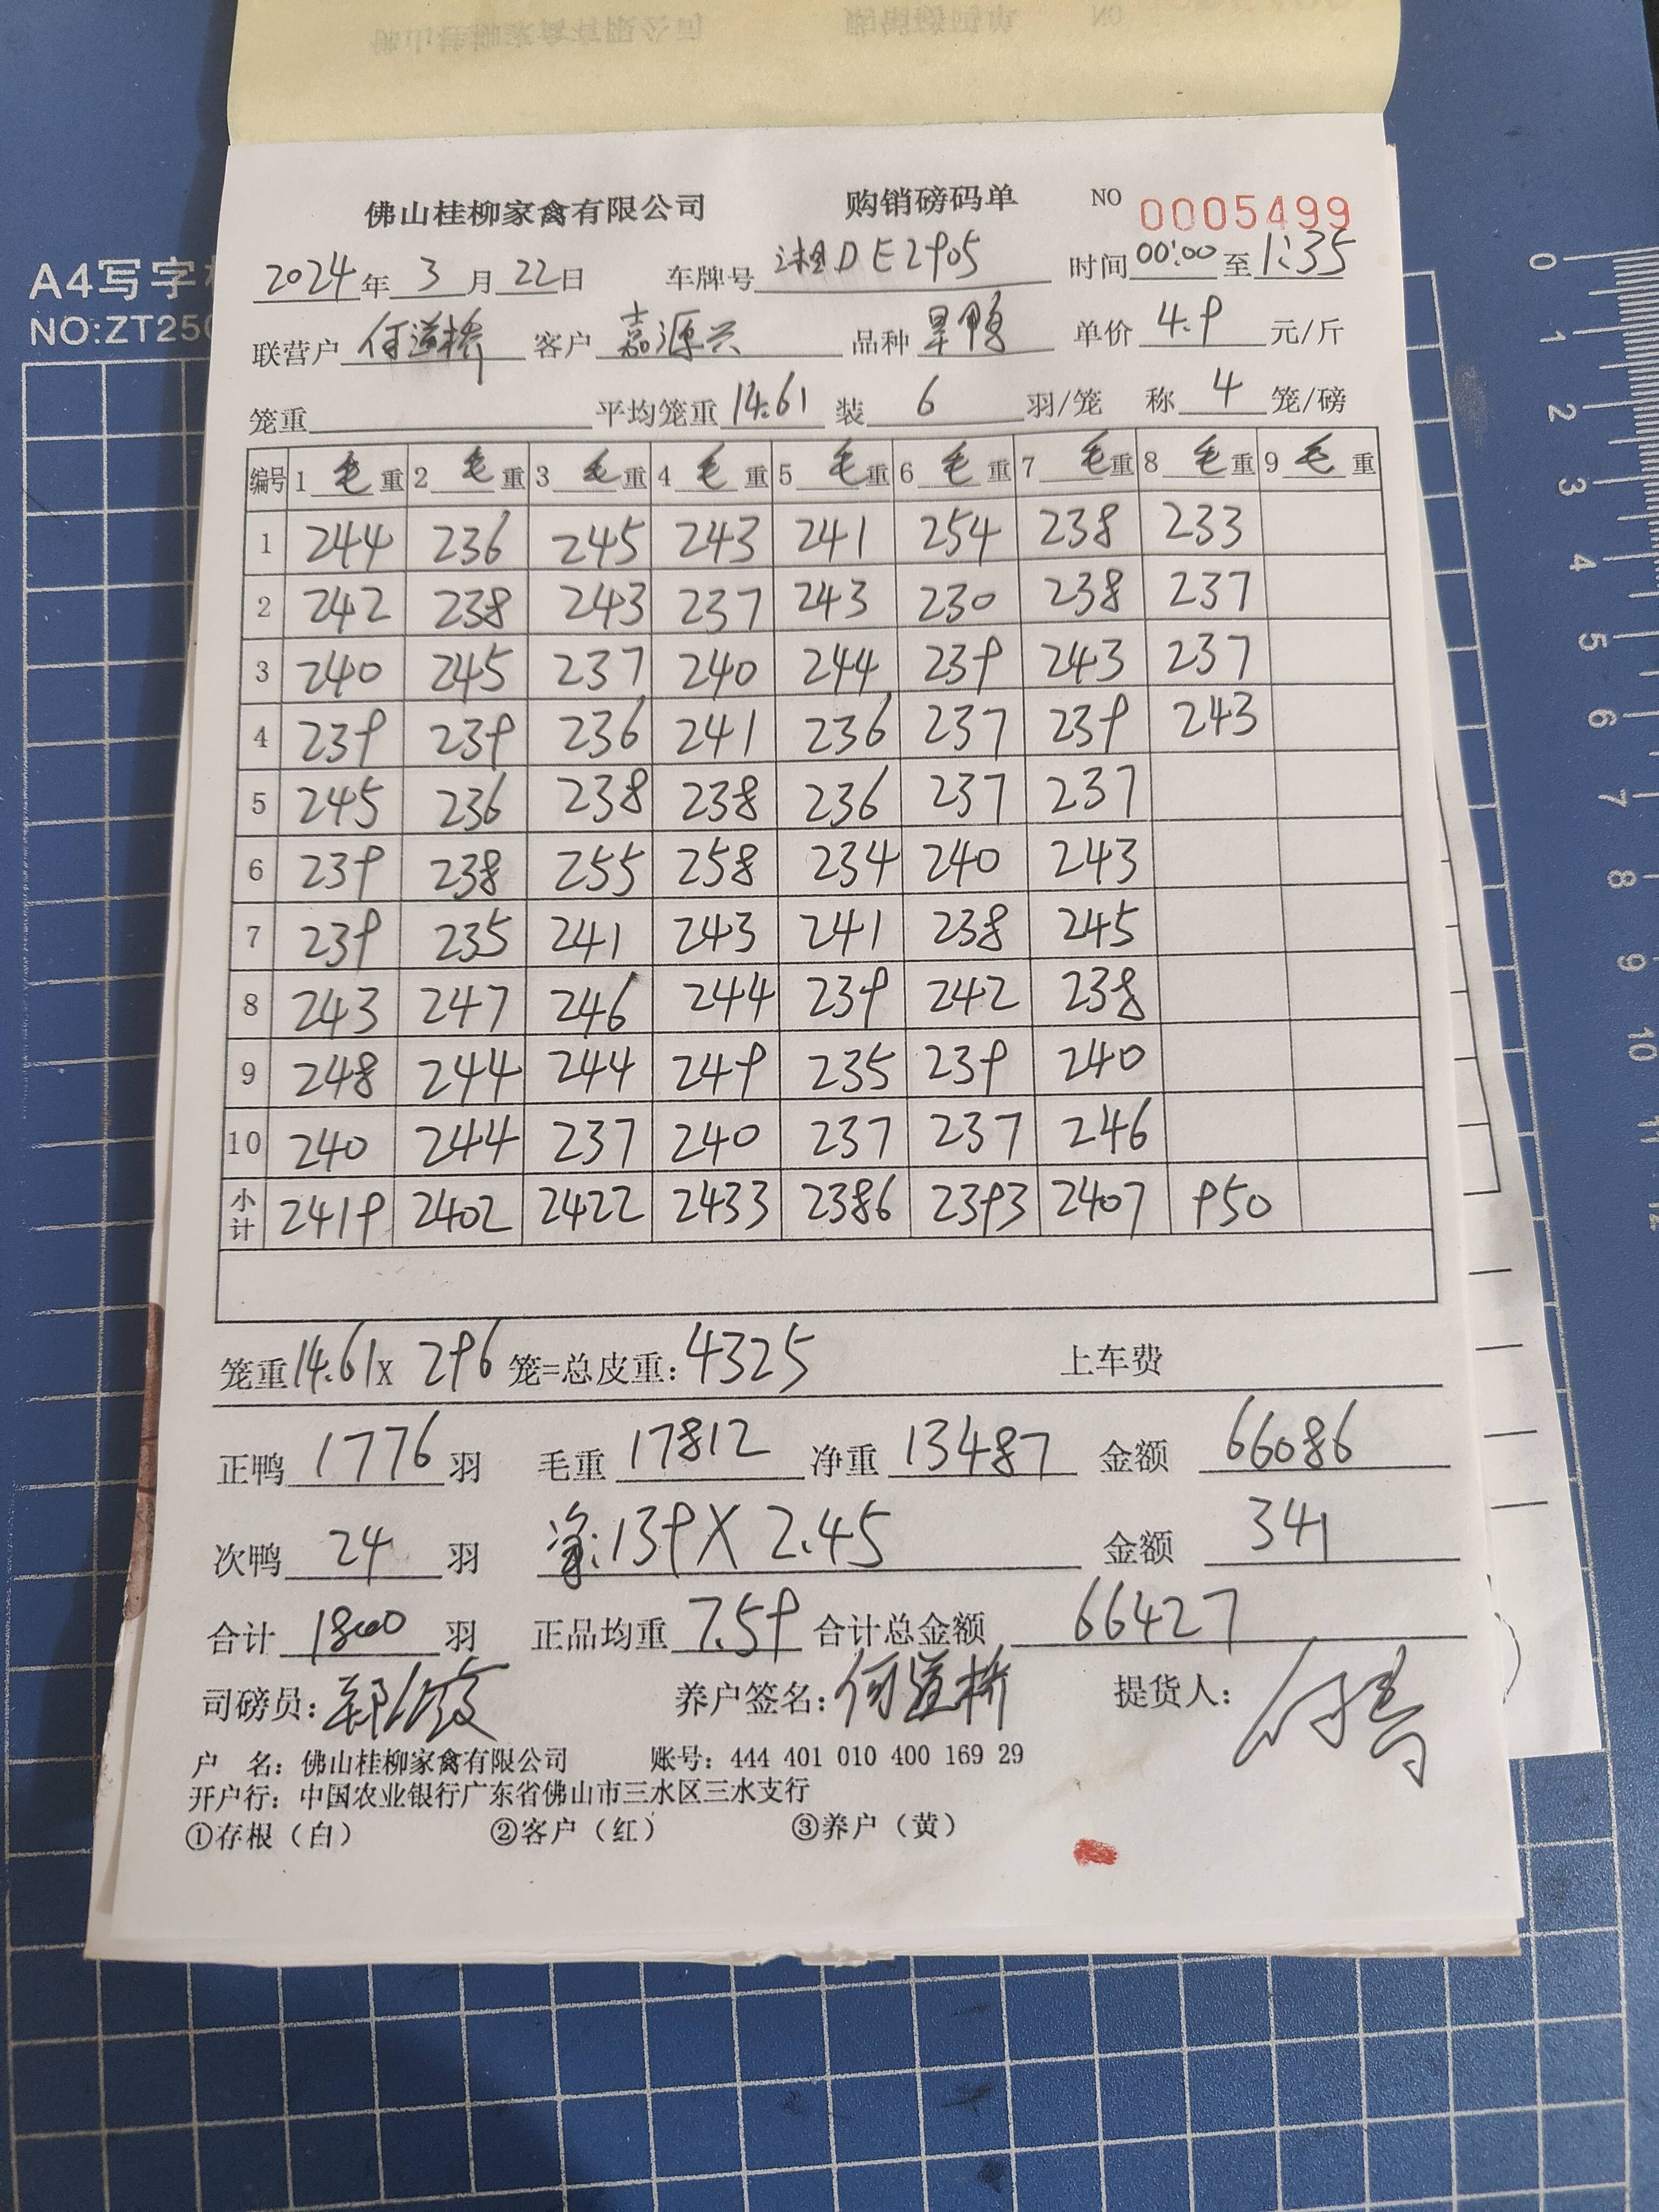 佛山桂柳家禽有限公司 购销磅码单 NO 0005499
2024年 3 月 22日 车牌号 湘DE2905 时间 00:00 至 1:35
联营户 何道桥 客户 嘉源兴 品种 旱鸭 单价 4.9 元/斤
笼重 平均笼重 14.61 装 6 羽/笼 称 4 笼/磅
编号 1 毛重 2 毛重 3 毛重 4 毛重 5 毛重 6 毛重 7 毛重 8 毛重 9 毛重
1 244 236 245 243 241 254 238 233
2 242 238 243 237 243 230 238 237
3 240 245 237 240 244 239 243 237
4 239 239 236 241 236 237 239 243
5 245 236 238 238 236 237 237
6 239 238 255 258 234 240 243
7 239 235 241 243 241 238 245
8 243 247 246 244 239 242 238
9 248 244 244 249 235 239 240
10 240 244 237 240 237 237 246
小计 2419 2402 2422 2433 2386 2393 2407 950
笼重 14.61 x 296 笼=总皮重: 4325 上车费
正鸭 1776 羽 毛重 17812 净重 13487 金额 66086
次鸭 24 羽 净:139X2.45 金额 341
合计 1800 羽 正品均重 7.59 合计总金额 66427
司磅员: 养户签名: 何道桥 提货人:
户 名: 佛山桂柳家禽有限公司 账号: 444 401 010 400 169 29
开户行: 中国农业银行广东省佛山市三水区三水支行
①存根（白） ②客户（红） ③养户（黄）
A4写字
NO:ZT25
0
1
2
3
4
5
6
7
8
9
10
11
12